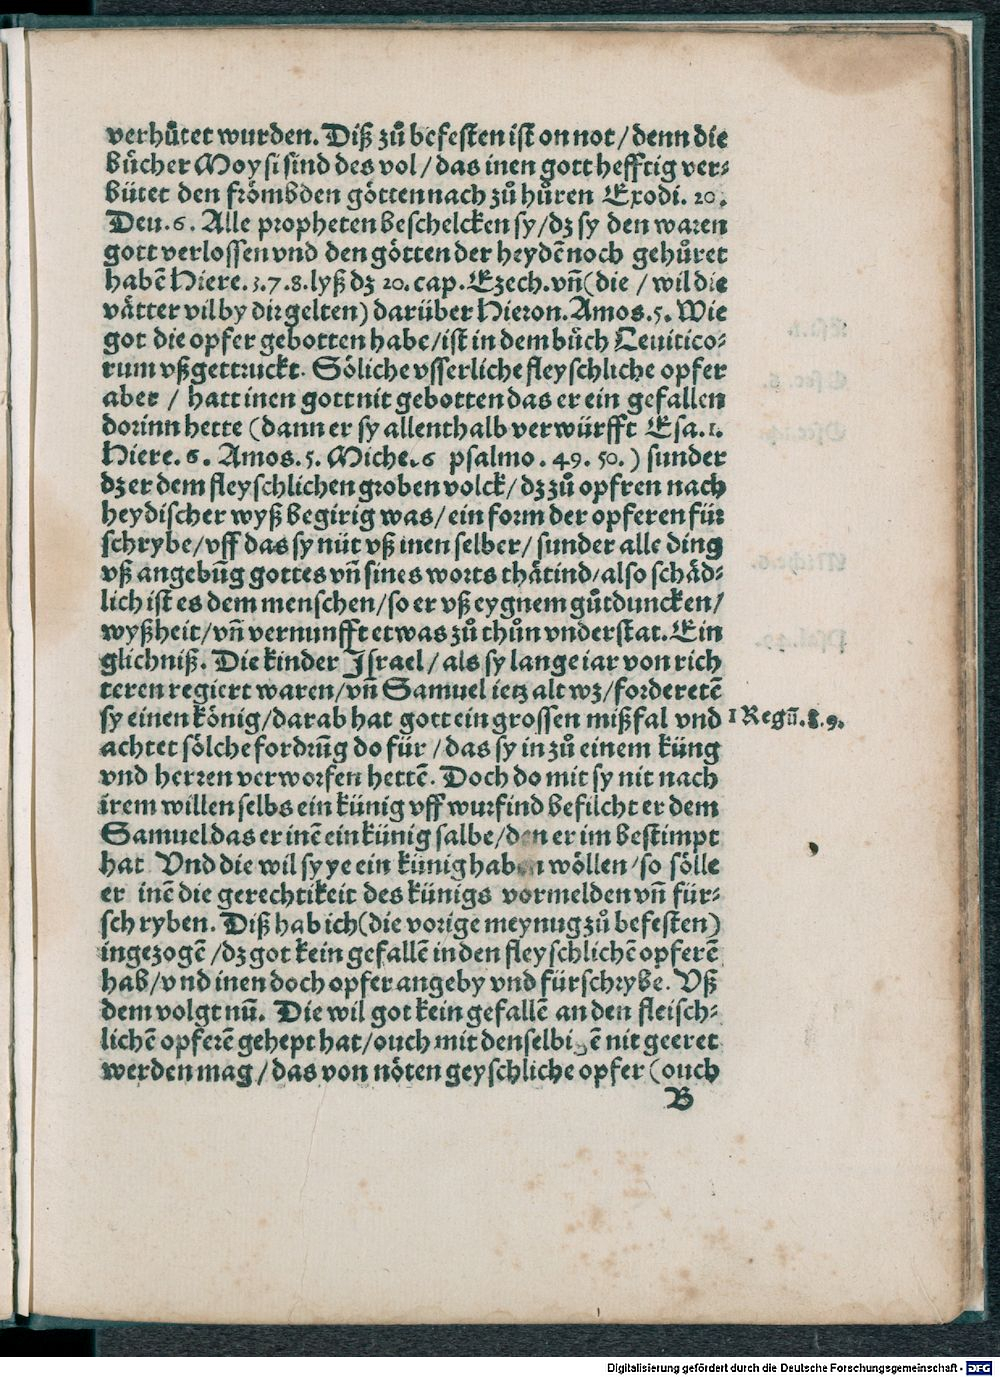 verhůtet wurden. Diß zů befesten ist on not / denn die
bücher Moysi sind des vol / das inen gott hefftig ver⸗
bütet den frömbden götten nach zů hůren Exodi. 20.
Deu. 6. Alle propheten beschelcken sy / dz sy den waren
gott verlossen vnd den götten der heydē noch gehůret
habē Hiere. 3. 7. 8. lyß dz 20. cap. Ezech. vn̄ (die / wil die
vätter vil by dir gelten) darüber Hieron. Amos. 5. Wie
got die opfer gebotten habe / ist in dem bůch Leuitico⸗
rum vßgettruckt. Söliche vsserliche fleyschliche opfer
aber / hatt inen gott nit gebotten das er ein gefallen
dorinn hette (dann er sy allenthalb verwürfft Esa. 1.
Hiere. 6. Amos. 5. Miche. 6 psalmo. 49. 50.) sunder
dz er dem fleyschlichen groben volck / dz zů opfren nach
heydischer wyß begirig was / ein form der opferen für
schrybe / vff das sy nüt vß inen selber / sunder alle ding
vß angebūg gottes vn̄ sines worts thätind / also schäd⸗
lich ist es dem menschen / so er vß eygnem gůtduncken /
wyßheit / vn̄ vernunfft etwas zů thůn vnderstat. Ein
glichniß. Die kinder Israel / als sy lange iar von rich
teren regiert waren / vn̄ Samuel ietz alt wz / forderetē
sy einen könig / darab hat gott ein grossen mißfal vnd
1 Regū. 8. 9.
achtet sölche fordrūg do für / das sy in zů einem küng
vnd herren verworfen hettē. Doch do mit sy nit nach
irem willen selbs ein künig vff wurfind befilcht er dem
Samuel das er inē ein künig salbe / den er im bestimpt
hat Vnd die wil sy ye ein künig haben wöllen / so sölle
er inē die gerechtikeit des künigs vormelden vn̄ für⸗
schryben. Diß hab ich (die vorige meynug zů befesten)
ingezogē / dz got kein gefallē in den fleyschlichē opferē
hab / vnd inen doch opfer angeby vnd fürschrybe. Vß
dem volgt nū. Die wil got kein gefallē an den fleisch⸗
lichē opferē gehept hat / ouch mit denselbigē nit geeret
werden mag / das von nöten geyschliche opfer (ouch
B
Digitalisierung gefördert durch die Deutsche Forschungsgemeinschaft - DFG